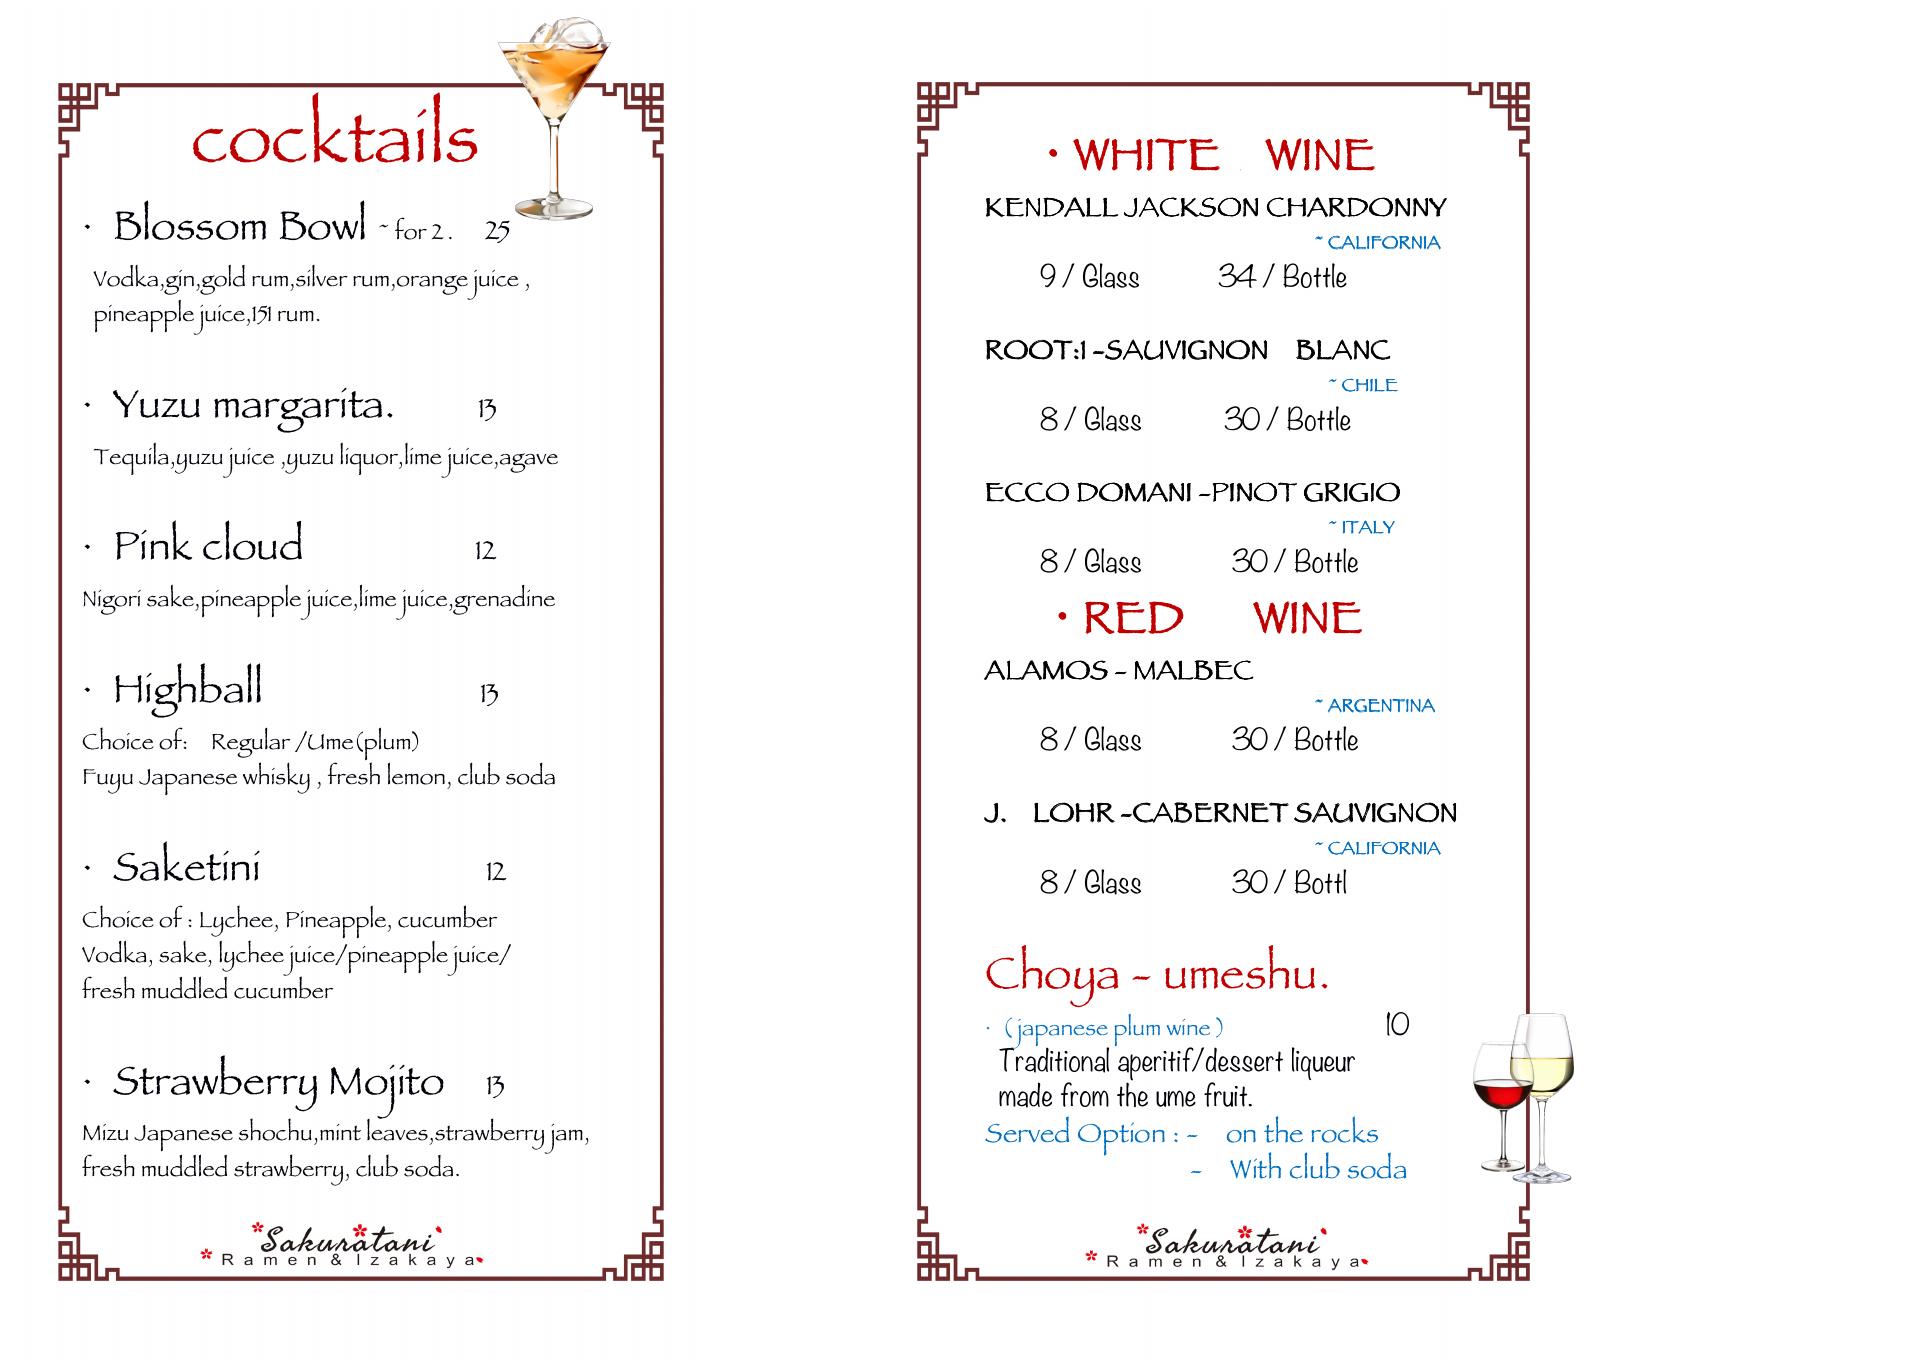 cocktails
· Blossom Bowl ~ for 2 . 25
Vodka,gin,gold rum,silver rum,orange juice ,
pineapple juice,151 rum.
· Yuzu margarita. 13
Tequila,yuzu juice ,yuzu liquor,lime juice,agave
· Pink cloud 12
Nigori sake,pineapple juice,lime juice,grenadine
· Highball 13
Choice of: Regular /Ume(plum)
Fuyu Japanese whisky , fresh lemon, club soda
· Saketini 12
Choice of : Lychee, Pineapple, cucumber
Vodka, sake, lychee juice/pineapple juice/
fresh muddled cucumber
· Strawberry Mojito 13
Mizu Japanese shochu,mint leaves,strawberry jam,
fresh muddled strawberry, club soda.
Sakuratani
Ramen & Izakaya
• WHITE WINE
KENDALL JACKSON CHARDONNY
~ CALIFORNIA
9 / Glass 34 / Bottle
ROOT:1 -SAUVIGNON BLANC
~ CHILE
8 / Glass 30 / Bottle
ECCO DOMANI -PINOT GRIGIO
~ ITALY
8 / Glass 30 / Bottle
• RED WINE
ALAMOS - MALBEC
~ ARGENTINA
8 / Glass 30 / Bottle
J. LOHR -CABERNET SAUVIGNON
~ CALIFORNIA
8 / Glass 30 / Bottl
Choya - umeshu.
· ( japanese plum wine ) 10
Traditional aperitif/dessert liqueur
made from the ume fruit.
Served Option : - on the rocks
- With club soda
Sakuratani
Ramen & Izakaya